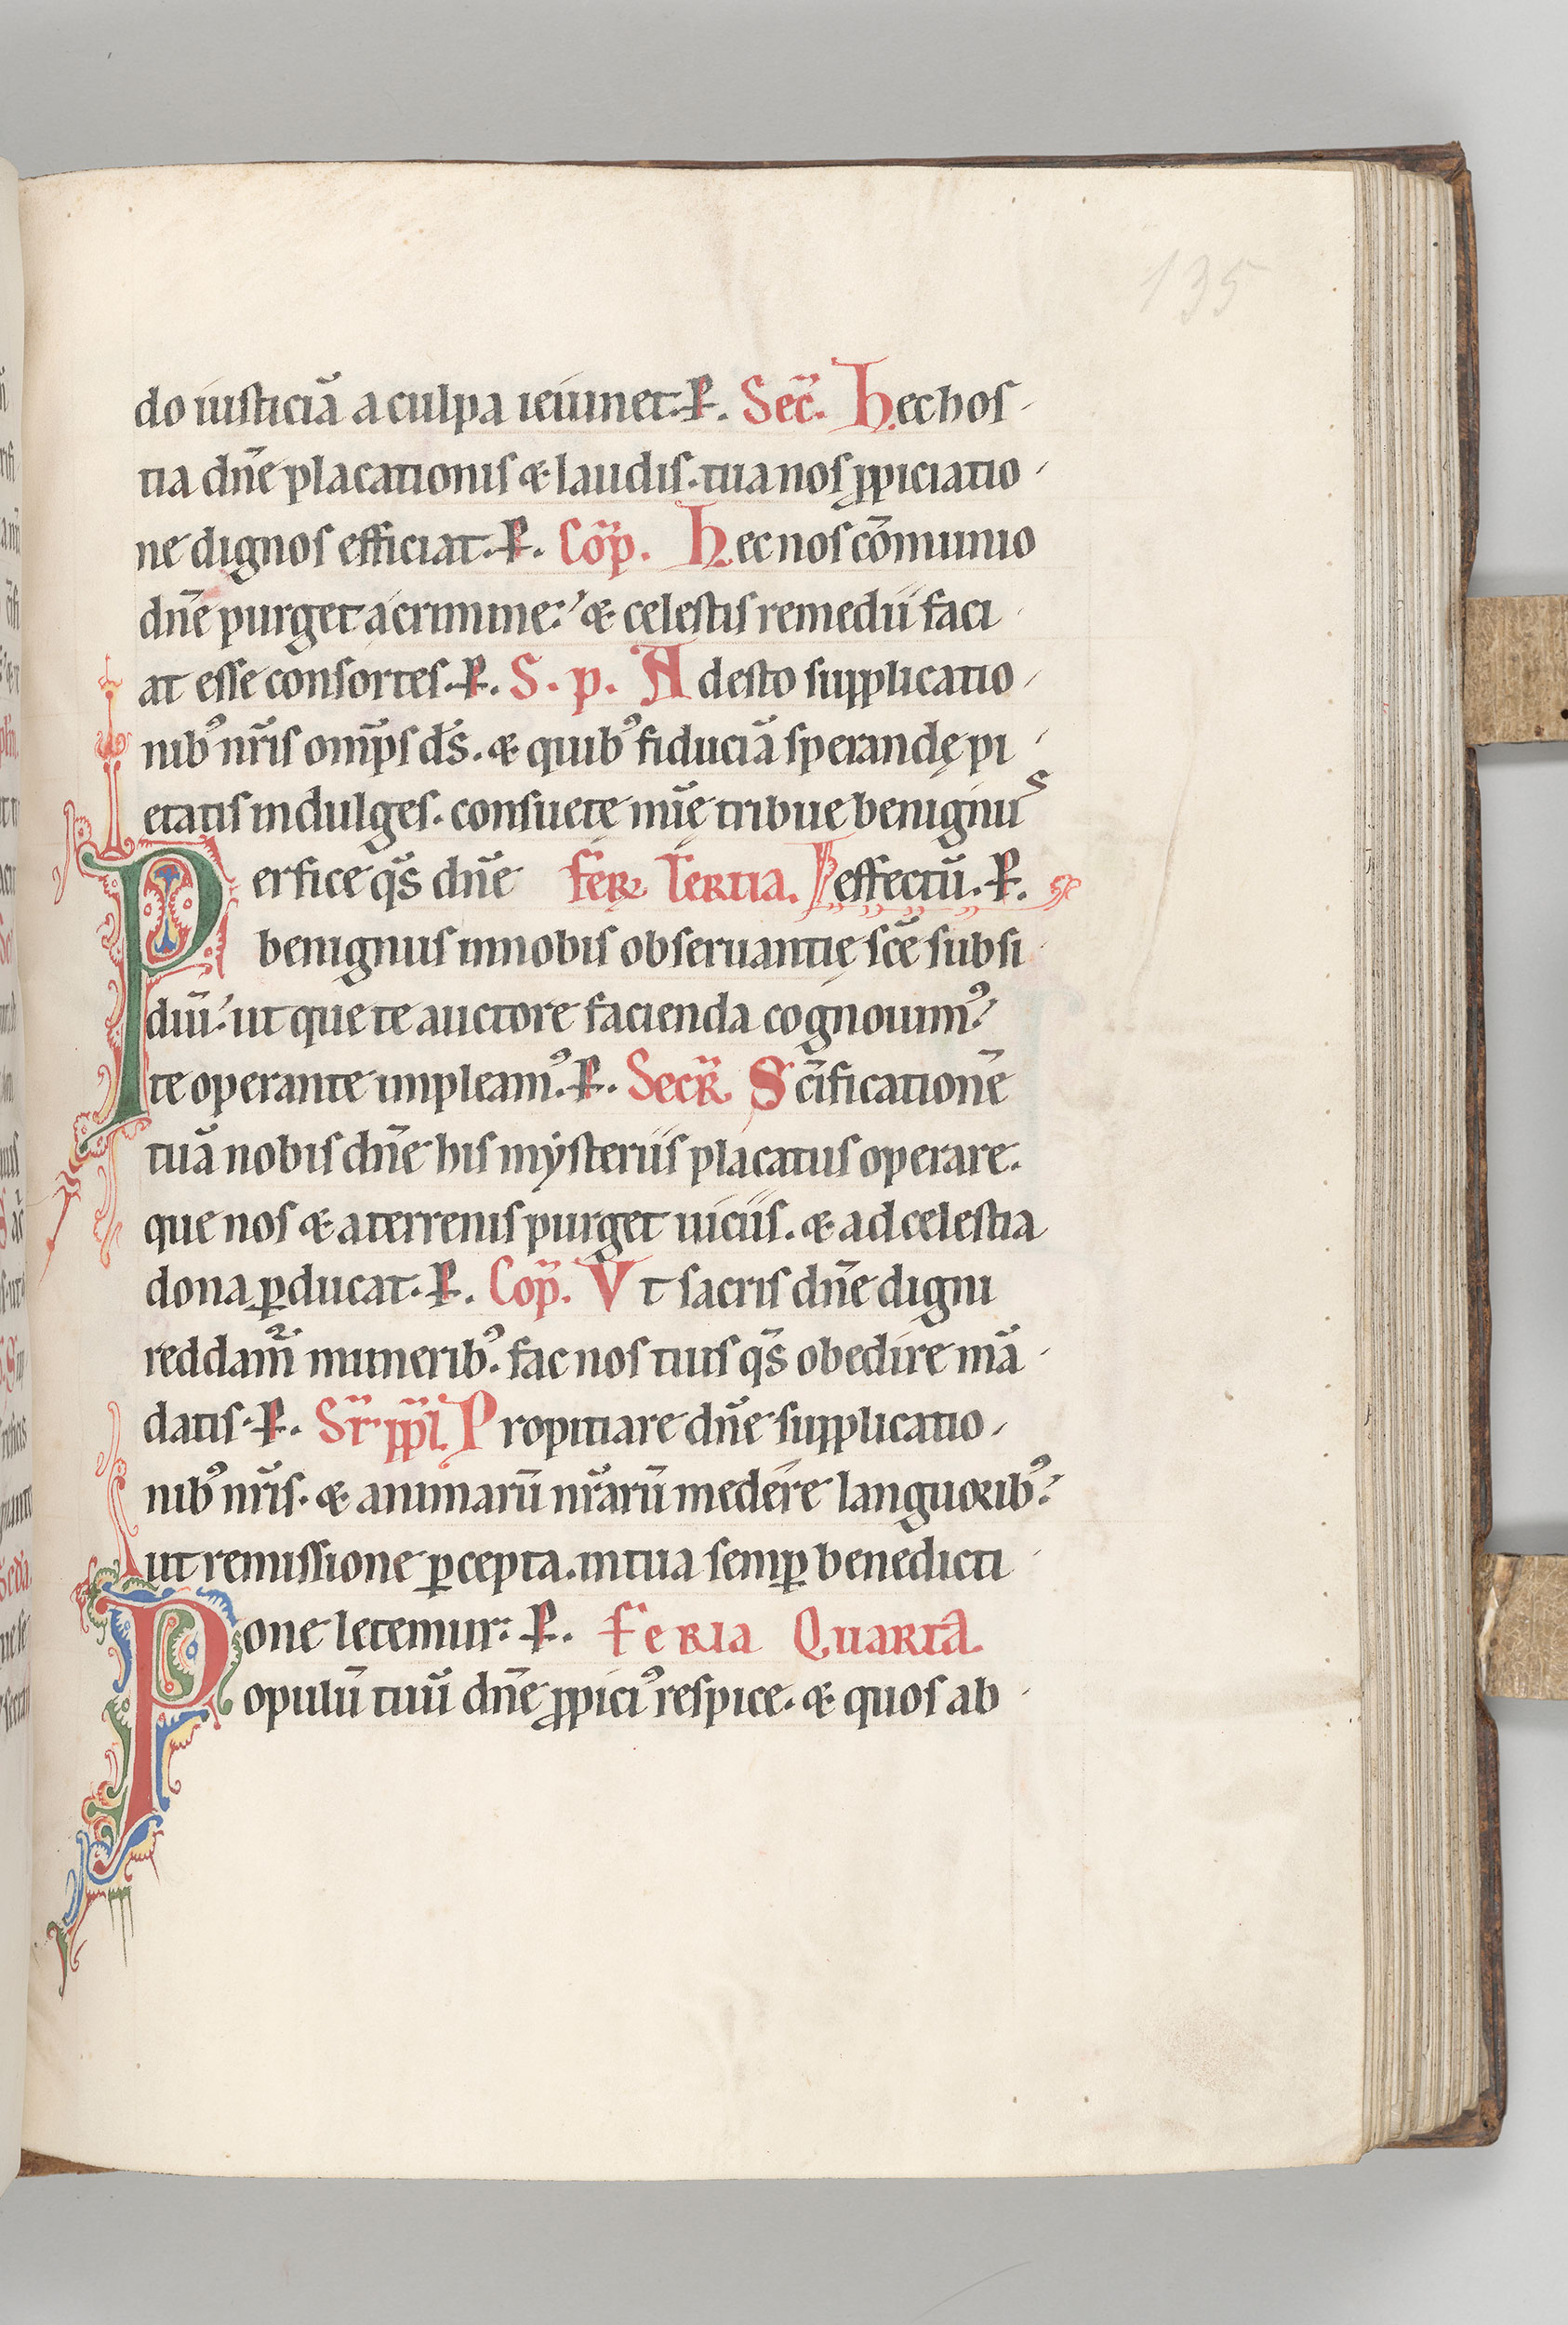 135
do iusticiā a culpa ieiunet. P. Sec̄. Hec hos
tia dn̄e placationis & laudis. tua nos ꝓpiciatio
ne dignos efficiat. P. Cōp. Hec nos cōmunio
dn̄e purget a crimine: & celestis remedii faci
at esse consortes. P. S. p. Adesto supplicatio
nibꝰ nr̄is omp̄s ds̄. & quibꝰ fiduciā sperandę pi
etatis indulges. consuetę mīę tribue benignus
Perfice qs̄ dn̄e Fer̄ Tertia. effectū. P.
benignus in nobis obseruantię sc̄e subsi
diū. ut que te auctore facienda cognouimꝰ.
te operante impleamꝰ. P. Secr̄. Sc̄ificationē
tuā nobis dn̄e his mẏsteriis placatus operare.
que nos & a terrenis purget uiciis. & ad celestia
dona ꝑducat. P. Cop̄. Vt sacris dn̄e digni
reddam̄ muneribꝰ. fac nos tuis qs̄ obedire mā
datis. P. Sr̄ pp̄l. Propitiare dn̄e supplicatio
nibꝰ nr̄is. & animarū nr̄arū medere languoribꝰ.
ut remissione ꝑcepta. in tua semꝑ benedicti
one letemur. P. Feria Quarta
Populū tuū dn̄e ꝓpiciꝰ respice. & quos ab